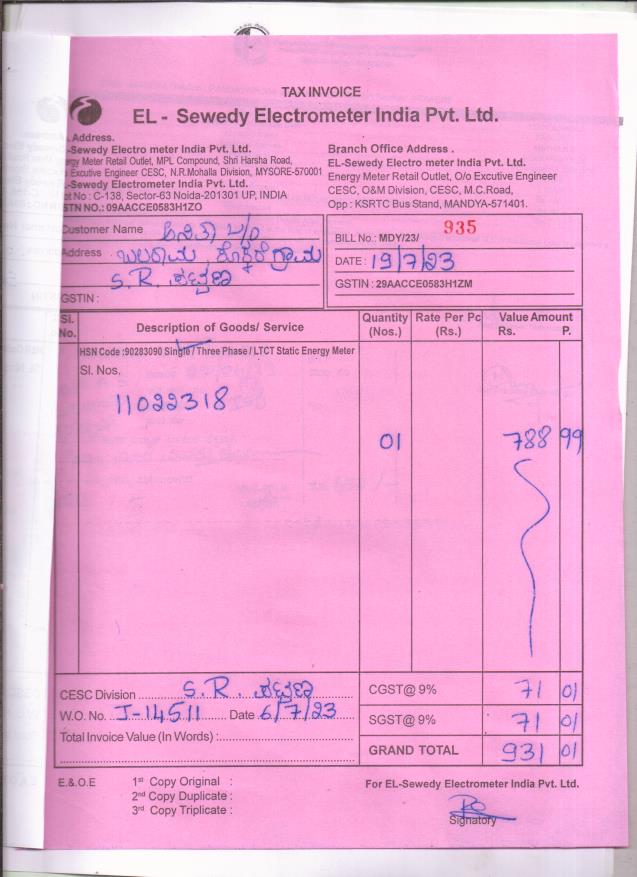 TAX INVOICE
EL - Sewedy Electrometer India Pvt. Ltd.
Address.
-Sewedy Electro meter India Pvt. Ltd.
ergy Meter Retail Outlet, MPL Compound, Shri Harsha Road,
Excutive Engineer CESC, N.R.Mohalla Division, MYSORE-570001
-Sewedy Electrometer India Pvt. Ltd.
ot No : C-138, Sector-63 Noida-201301 UP, INDIA
STN NO.: 09AACCE0583H1ZO
Branch Office Address .
EL-Sewedy Electro meter India Pvt. Ltd.
Energy Meter Retail Outlet, O/o Excutive Engineer
CESC, O&M Division, CESC, M.C.Road,
Opp : KSRTC Bus Stand, MANDYA-571401.
Customer Name
Address
S.R. ಪಟ್ಟಣ
GSTIN :
BILL No.: MDY/23/ 935
DATE : 19/7/23
GSTIN : 29AACCE0583H1ZM
Sl. No. Description of Goods/ Service Quantity (Nos.) Rate Per Pc (Rs.) Value Amount Rs. P.
HSN Code :90283090 Single / Three Phase / LTCT Static Energy Meter
Sl. Nos.
11022318
01 788 99
CESC Division S.R. ಪಟ್ಟಣ
W.O. No. J-14511 Date 6/7/23
Total Invoice Value (In Words) :
CGST@ 9% 71 01
SGST@ 9% 71 01
GRAND TOTAL 931 01
E.& O.E
1st Copy Original :
2nd Copy Duplicate :
3rd Copy Triplicate :
For EL-Sewedy Electrometer India Pvt. Ltd.
Signatory